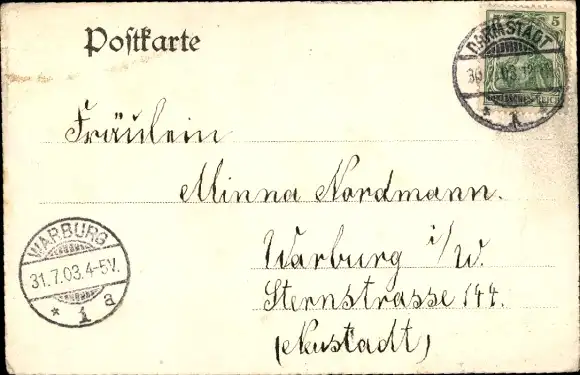 Postkarte
5
DARMSTADT
30 03
* 1
Fräulein
Minna Nordmann.
Warburg i/W.
Sternstrasse 144.
(Neustadt)
WARBURG
31.7.03.4-5V.
* 1 a